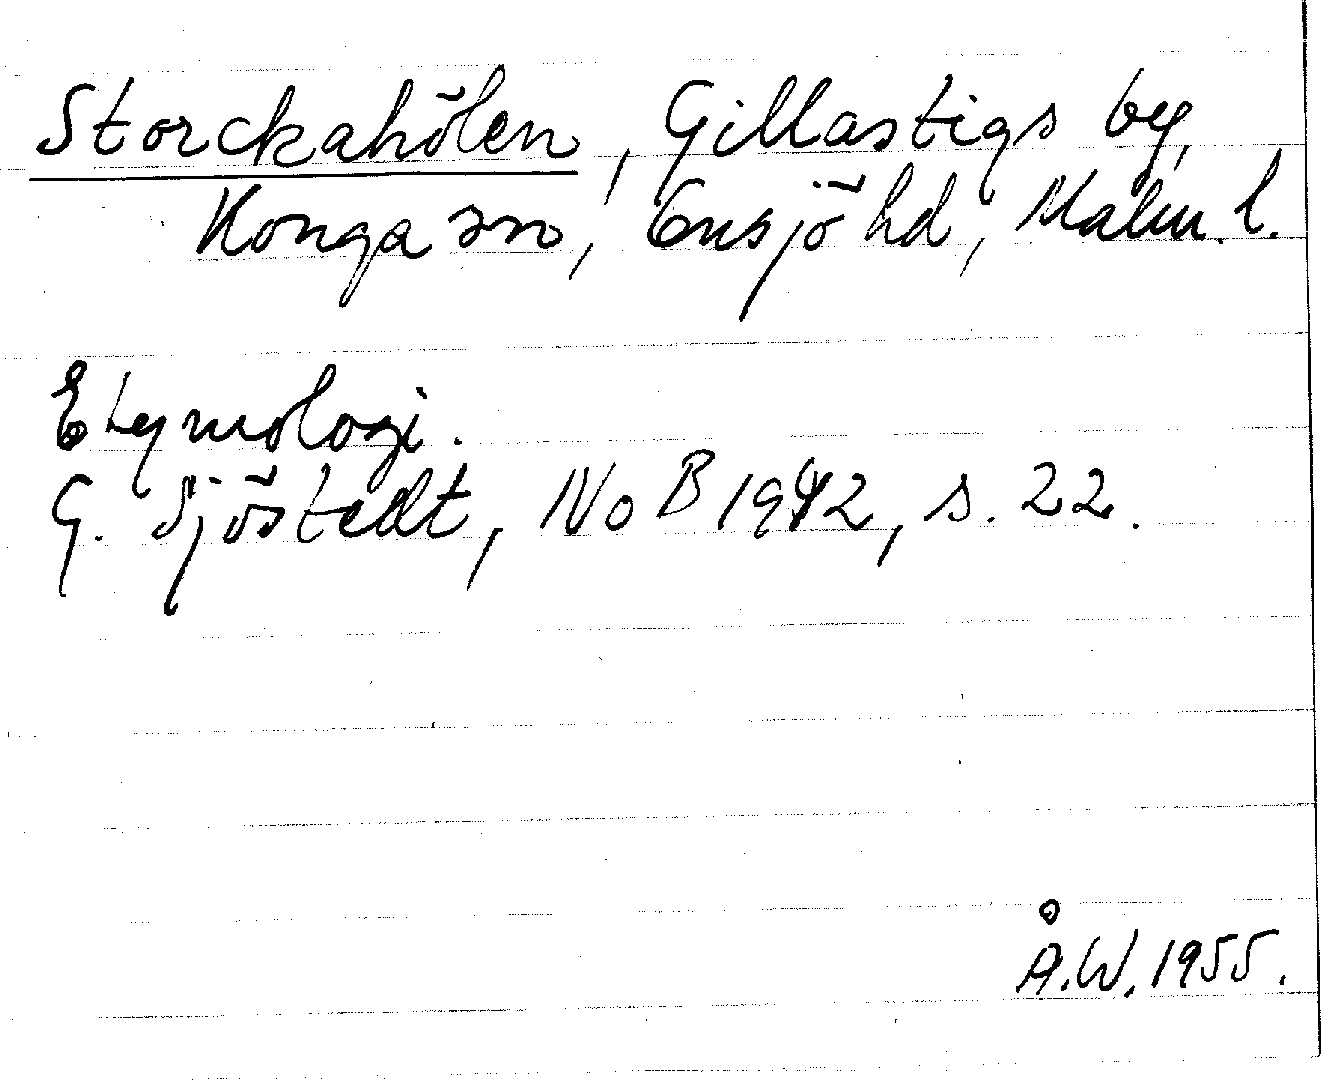 Storckahölen, Gillastigs by,
Konga sn, Onsjö hd, Malm. l.
Etymologi.
G. Sjöstedt, NoB 1942, s. 22.
Å.W. 1955.